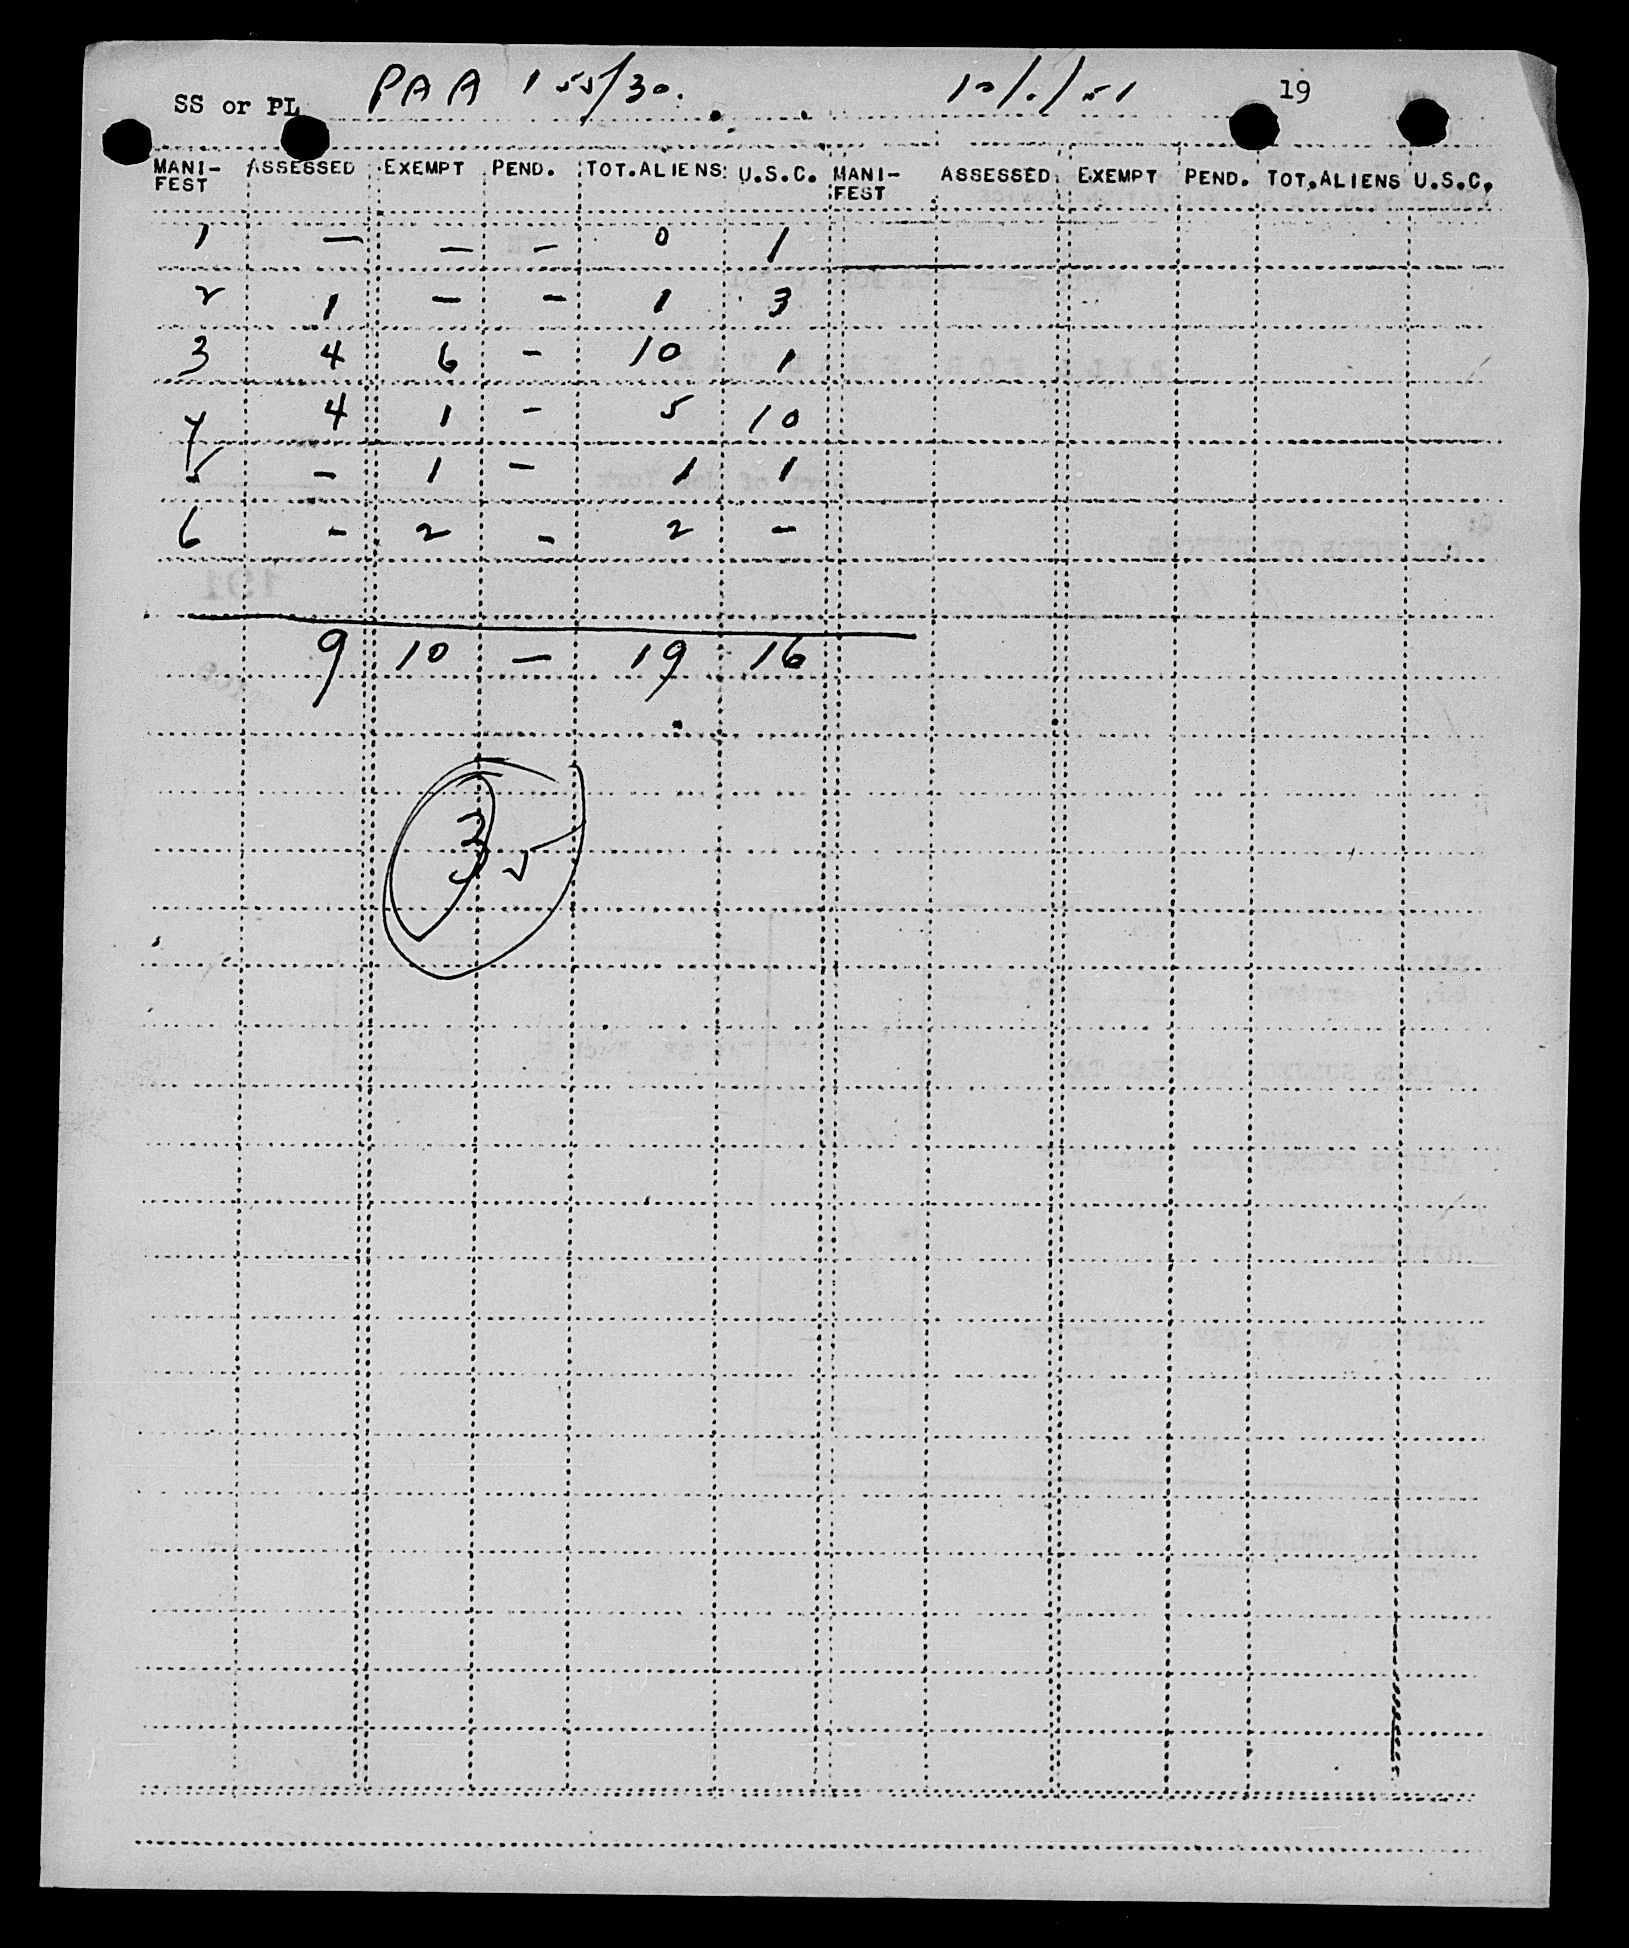 SS or PL PAA 155/30. 10/1/51 19
MANI-FEST ASSESSED EXEMPT PEND. TOT.ALIENS U.S.C. MANI-FEST ASSESSED EXEMPT PEND. TOT.ALIENS U.S.C.
1 — — — 0 1
2 1 — — 1 3
3 4 6 — 10 1
4 4 1 — 5 10
5 — 1 — 1 1
6 — 2 — 2 —
9 10 — 19 16
35